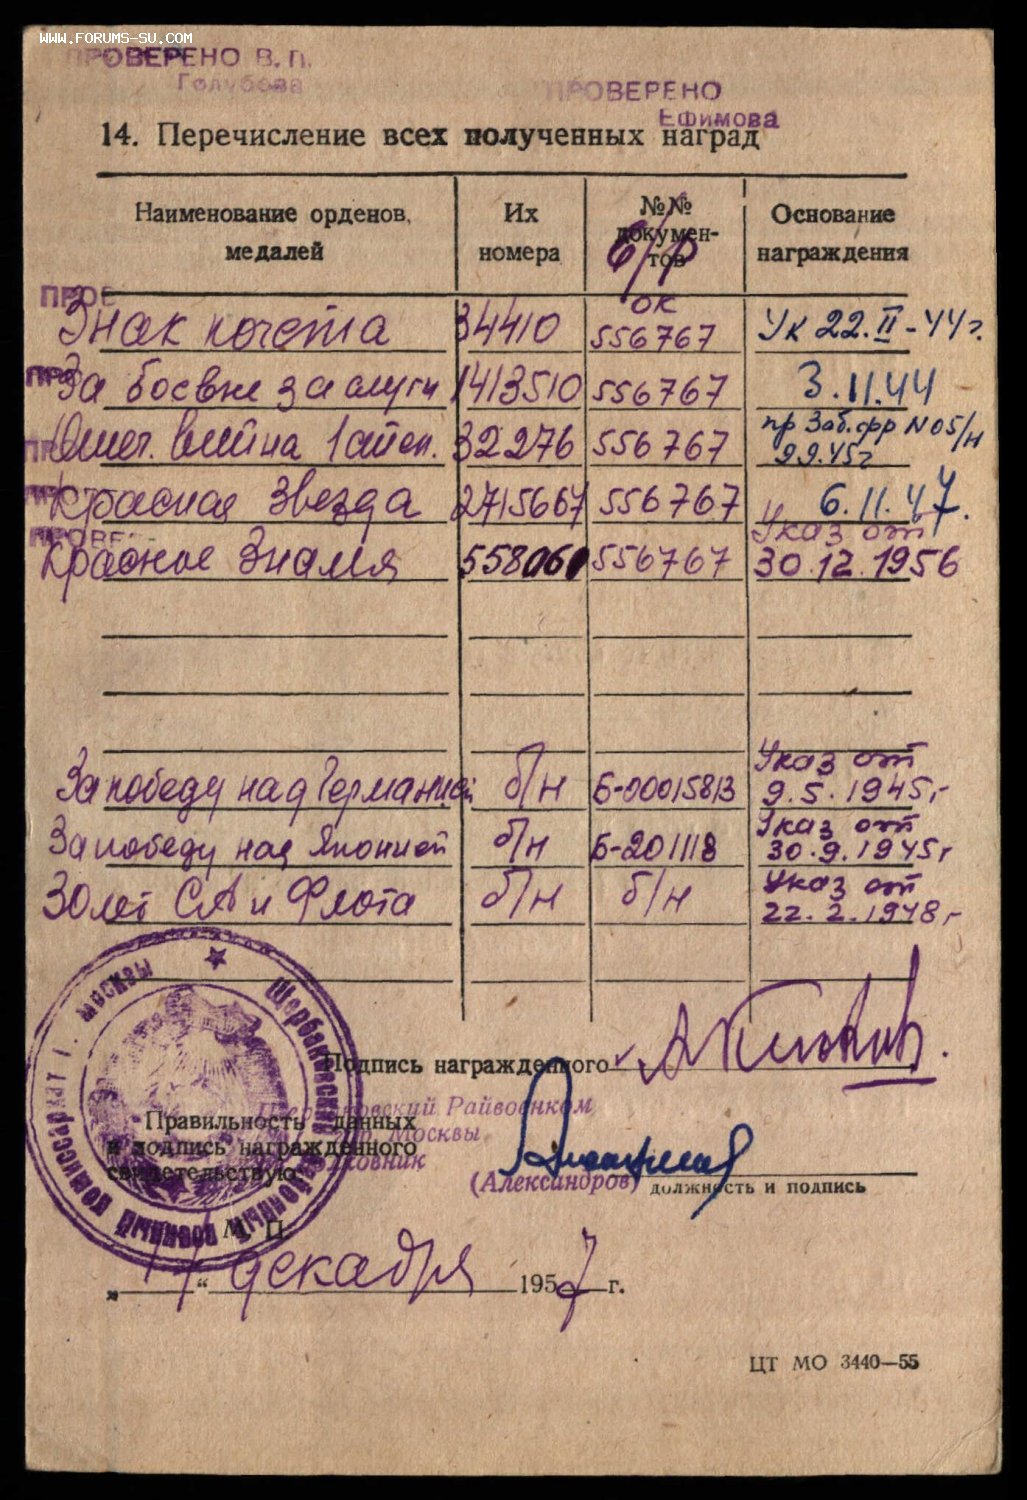 www.forums-su.com
ПРОВЕРЕНО В.П.
Голубова
ПРОВЕРЕНО
Ефимова
14. Перечисление всех полученных наград
Наименование орденов, медалей Их номера №№ документов Основание награждения
б/р
ОК
ПРОВ
Знак почета 34410 556767 Ук 22.II-44г.
ПРО
За боевые заслуги 1413510 556767 3.11.44
Отеч. война 1 степ. 32276 556767 пр Заб.фр N 05/н
9.9.45г
Красная Звезда 2715667 556767 6.11.47.
ПРОВЕ
Красное Знамя 558060 556767 Указ от
30.12.1956
За победу над Германией б/н Б-00015813 Указ от
9.5.1945г
За победу над Японией б/н Б-201118 Указ от
30.9.1945г
30 лет СА и Флота б/н б/н Указ от
22.2.1948г
Щербаковский районный военный комиссариат г. Москвы
Подпись награжденного
Щербаковский Райвоенком
гор. Москвы
Правильность данных
и подпись награжденного
свидетельствую
Полковник
(Александров)
должность и подпись
М. П.
„17“ декабря 1957 г.
ЦТ МО 3440—55